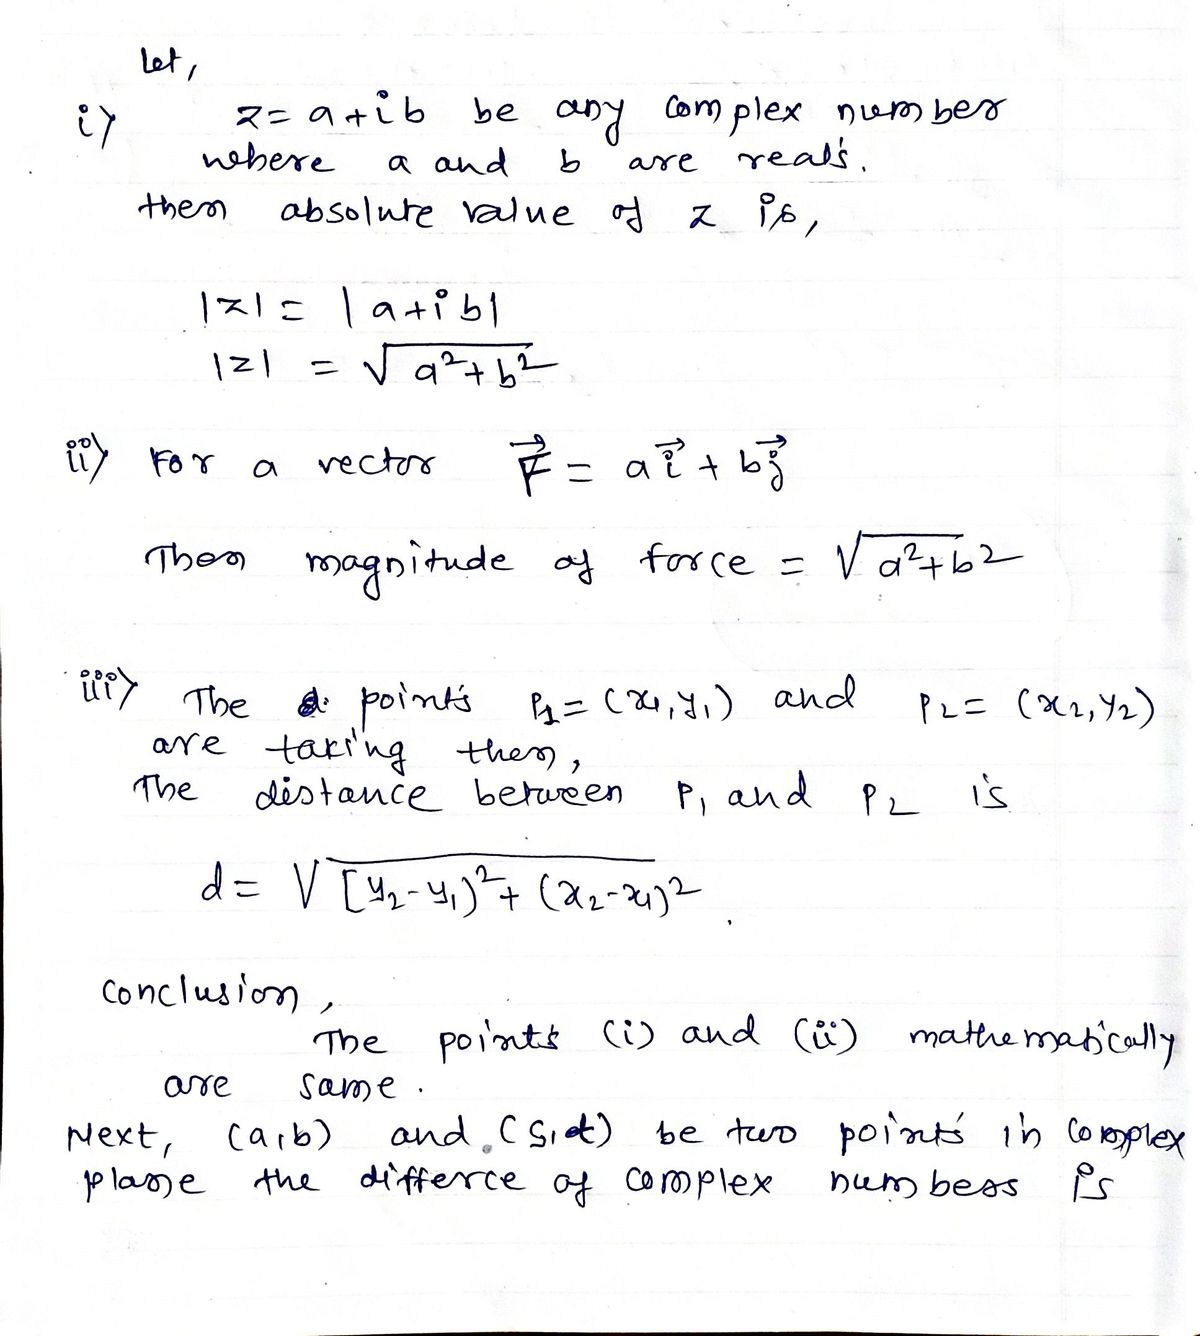 Let,
i) z = a + ib be any complex number
where a and b are real's.
then absolute value of z is,
|z| = |a + ib|
|z| = √a²+b²
ii) For a vector F⃗ = a i⃗ + b j⃗
Then magnitude of force = √a²+b²
iii) The points P₁ = (x₁, y₁) and P₂ = (x₂, y₂)
are taking then,
The distance between P₁ and P₂ is
d = √[y₂-y₁)² + (x₂-x₁)²
Conclusion,
The points (i) and (ii) mathematically
are same.
Next, (a,b) and (s,t) be two points in complex
plane the differce of complex numbers is